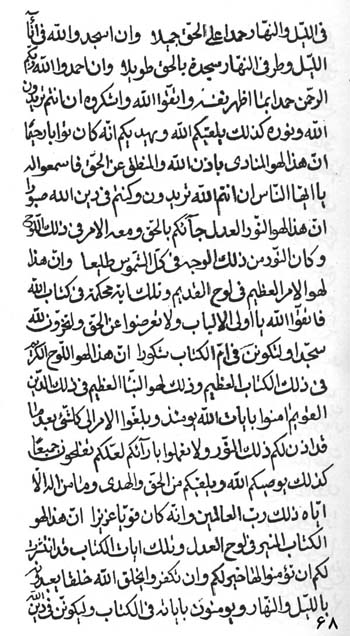 فى الليل والنهار حمدا على الحق جميلا وان اسجد والله فى اناء
الليل وطرفى النهار سجدة بالحق طويلا وان احمدوا الله ربكم
الرحمن حمدا بما اظهر نفسه واتقوا الله واشكروه ان انتم تريدون
الله ونوره كذلك يلقيكم الله ويهديكم انه كان توابا رحيما
ان هذا لهو المنادى باذن الله والمنطق عن الحق فاسمعوا له
يا ايها الناس ان انتم الله تريدون وكنتم فى دين الله صبورا
ان هذا لهو النور العدل جاءكم بالحق ومعه الامر فى ذلك اللوح
وكان النور من ذلك الوجه فى كل الشموس طليعا وان هذا
لهو الامر العظيم فى لوح القديم وتلك اية محكمة فى كتاب الله
فاتقوا الله يا اولى الالباب ولا تعرضوا عن الحق ولتخرون لله
سجدا ولتكونن فى ام الكتاب شكورا ان هذا لهو اللوح الكريم
فى ذلك الكتاب العظيم وذلك لهو النبا العظيم فى ذلك الدين
القويم امنوا بايات الله يومئذ وبلغوا الامر الى كل شئ بعد ما
قد اذن لكم ذلك المقر ولا تعملوا بارائكم لعلكم تفلحون جميعا
كذلك يوصيكم الله ويلقيكم من الحق والهدى وما من اله الا
اياه ذلك رب العالمين وانه كان قويا عزيزا ان هذا لهو
الكتاب المنير فى لوح العدل وتلك ايات الكتاب قد
لكم ان تؤمنوا لها خير لكم وان تكفروا يخلق الله خلقا يعبدونه
بالليل والنهار ويومنون باياته فى الكتاب وليكونن فى دين الله
٦٨